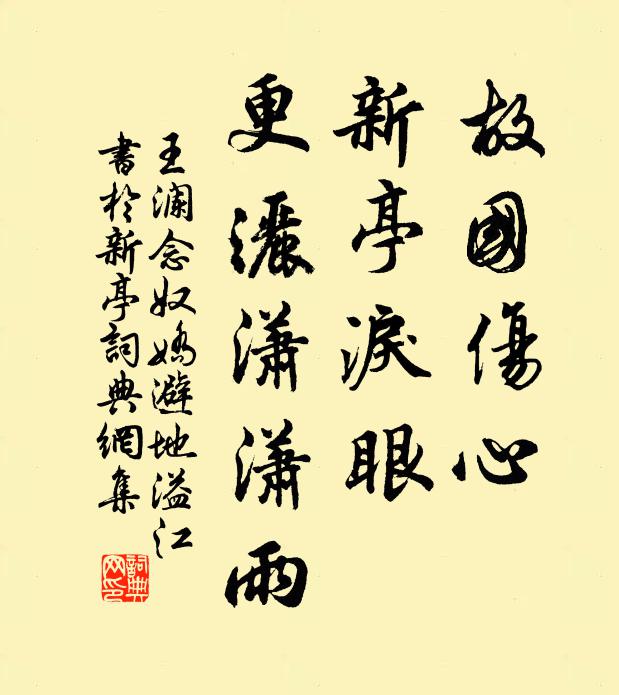 故國傷心
新亭淚眼
更灑瀟瀟雨
王瀾念奴嬌避地溢江
書於新亭詞典網集
詞典
网印